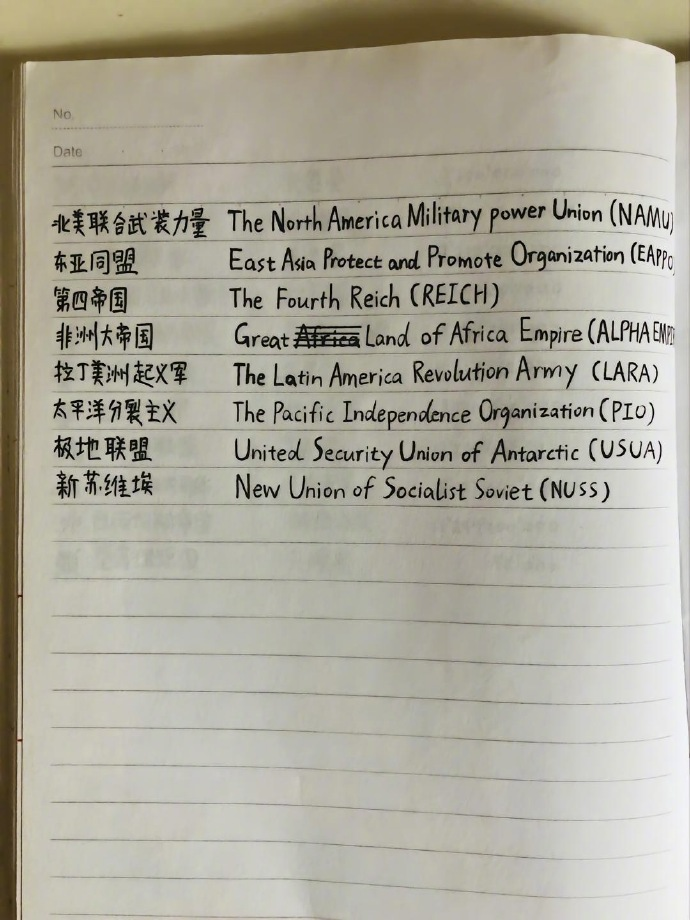 No.
Date
北美联合武装力量 The North America Military power Union (NAMU)
东亚同盟 East Asia Protect and Promote Organization (EAPPO
第四帝国 The Fourth Reich (REICH)
非洲大帝国 Great Africa Land of Africa Empire (ALPHA EMPI
拉丁美洲起义军 The Latin America Revolution Army (LARA)
太平洋分裂主义 The Pacific Independence Organization (PIO)
极地联盟 United Security Union of Antarctic (USUA)
新苏维埃 New Union of Socialist Soviet (NUSS)